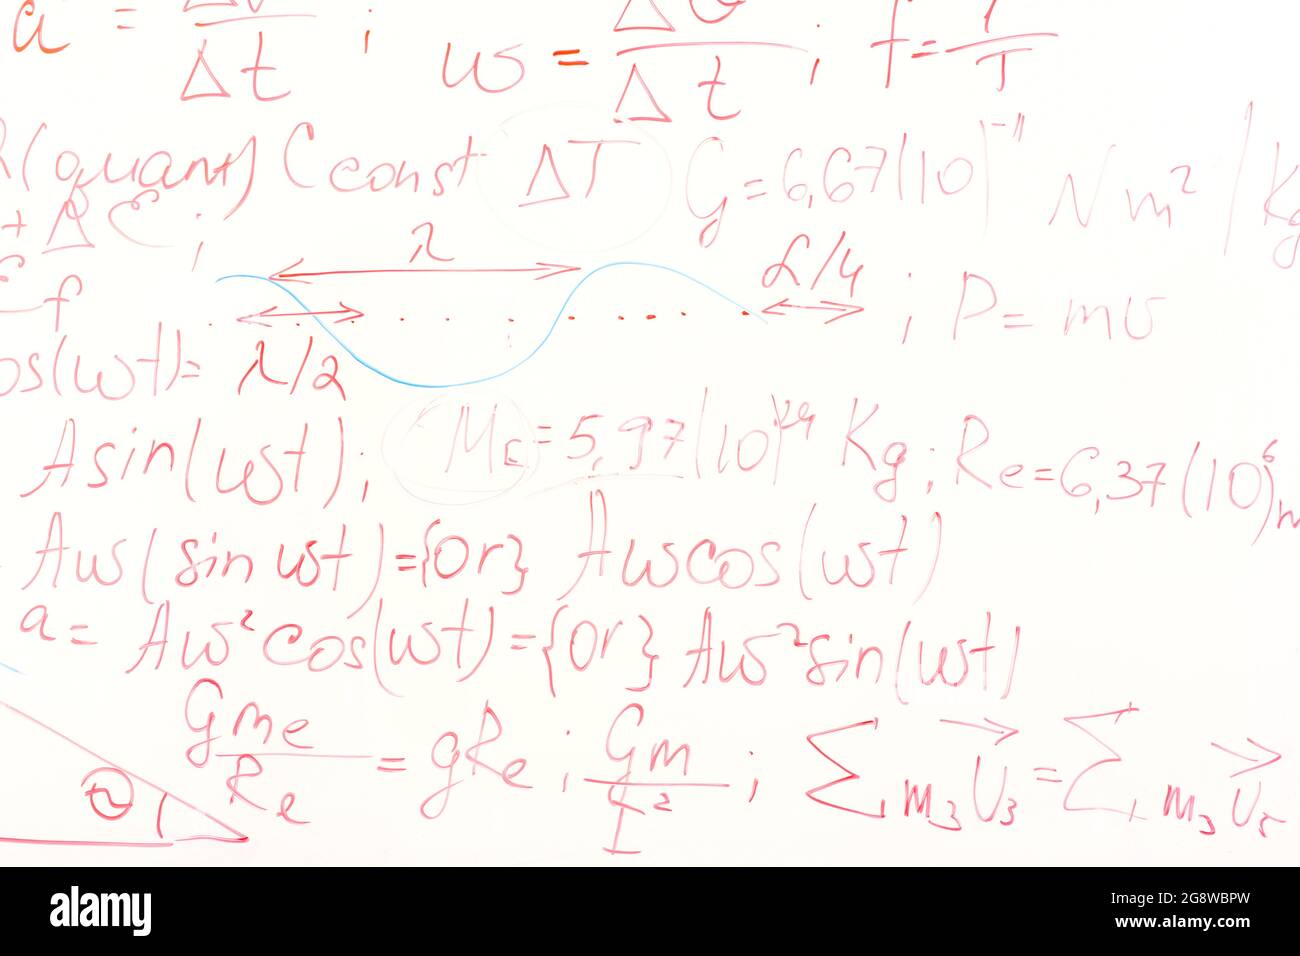 a = Δv/Δt ; ω = ΔΘ/Δt ; f = 1/T
(quant) C const ΔT G = 6,67(10)⁻¹¹ Nm²/Kg
+ ΔƐ ;
Ɛf λ L/4 ; P = mv
os(ωt) = λ/2
Asin(ωt) ; ME = 5,97(10)²⁴ Kg ; Re = 6,37(10⁶)m
Aω(sin ωt) = {or} Aωcos(ωt)
a = Aω²cos(ωt) = {or} Aω²sin(ωt)
Gme/Re = gRe ; Gm/r² ; ∑m₃v₃ = ∑m₃v₅
Θ
alamy
Image ID: 2G8WBPW
www.alamy.com